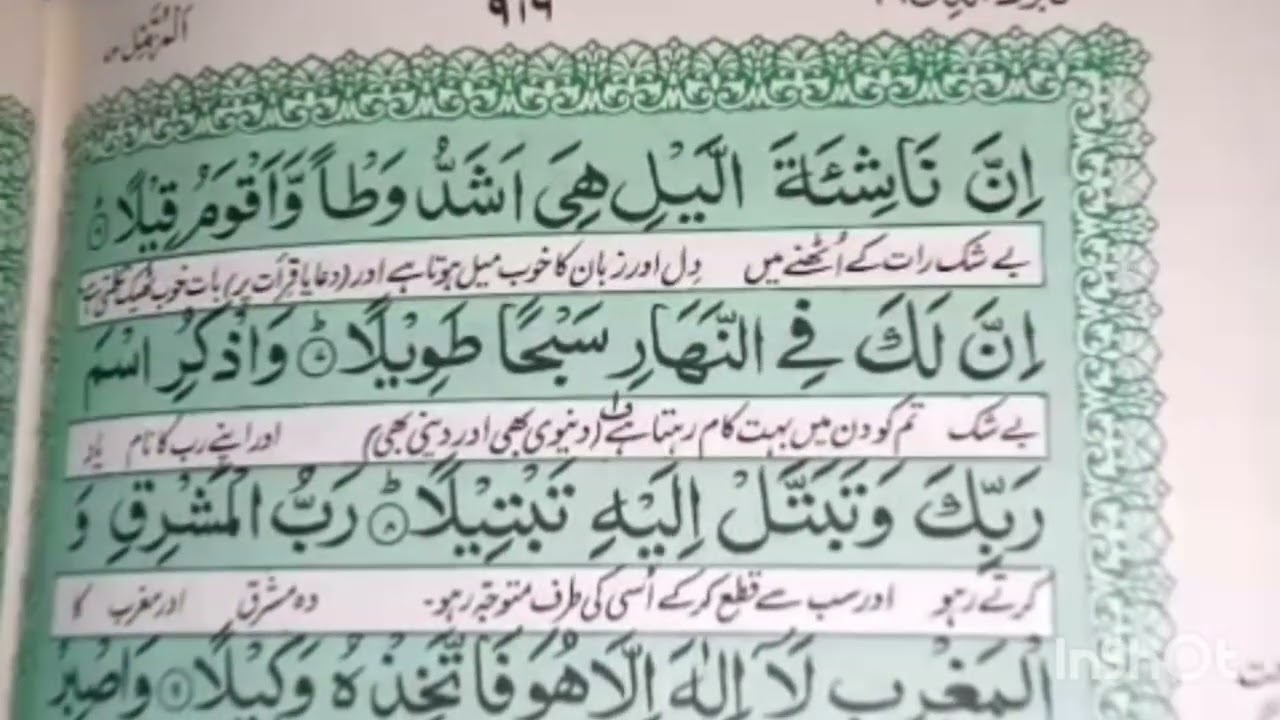 المزمل
٩١٦
اِنَّ نَاشِئَةَ الَّيْلِ هِىَ اَشَدُّ وَطْاً وَّاَقْوَمُ قِيْلًا ۶
بے شک رات کے اُٹھنے میں دِل اور زبان کا خوب میل ہوتا ہے اور (دعا یا قرأت پر) بات خوب ٹھیک نکلتی ہے
اِنَّ لَكَ فِى النَّهَارِ سَبْحًا طَوِيْلًا ۷ وَاذْكُرِ اسْمَ
بے شک تم کو دن میں بہت کام رہتا ہے (دنیوی بھی اور دینی بھی) اور اپنے رب کا نام یاد
رَبِّكَ وَتَبَتَّلْ اِلَيْهِ تَبْتِيْلًا ۸ رَبُّ الْمَشْرِقِ وَ
کرتے رہو اور سب سے قطع کر کے اُسی کی طرف متوجہ رہو۔ وہ مشرق اور مغرب کا
الْمَغْرِبِ لَآ اِلٰهَ اِلَّا هُوَ فَاتَّخِذْهُ وَكِيْلًا ۹ وَاصْبِرْ
InShOt